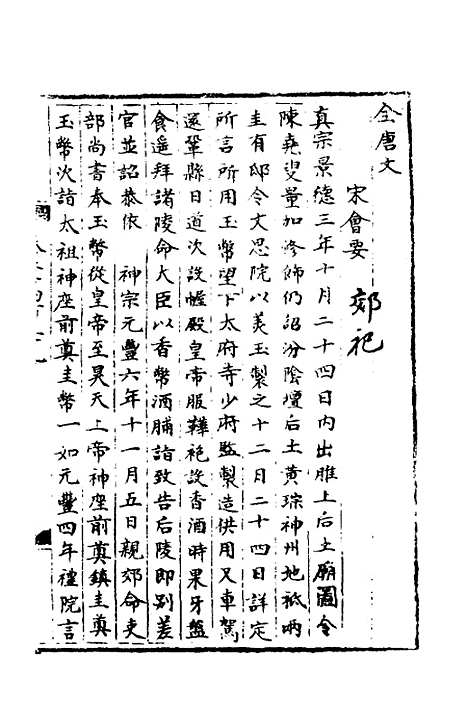 全唐文
宋會要
郊祀
真宗景德三年十月二十四日內出脽上后土廟圖令
陳堯叟量加修飾仍詔汾陰壇后土黃琮神州地祇兩
圭有邸令文思院以美玉製之十二月二十四日詳定
所言所用玉幣望下太府寺少府監製造供用又車駕
還鞏縣日道次設幄殿皇帝服鞾袍設香酒時果牙盤
食遥拜諸陵命大臣以香幣酒脯詣致告后陵即别差
官並詔恭依　神宗元豐六年十一月五日親郊命吏
部尚書奉玉幣從皇帝至昊天上帝神座前奠鎮圭奠
玉幣次詣太祖神座前奠圭幣一如元豐四年禮院言